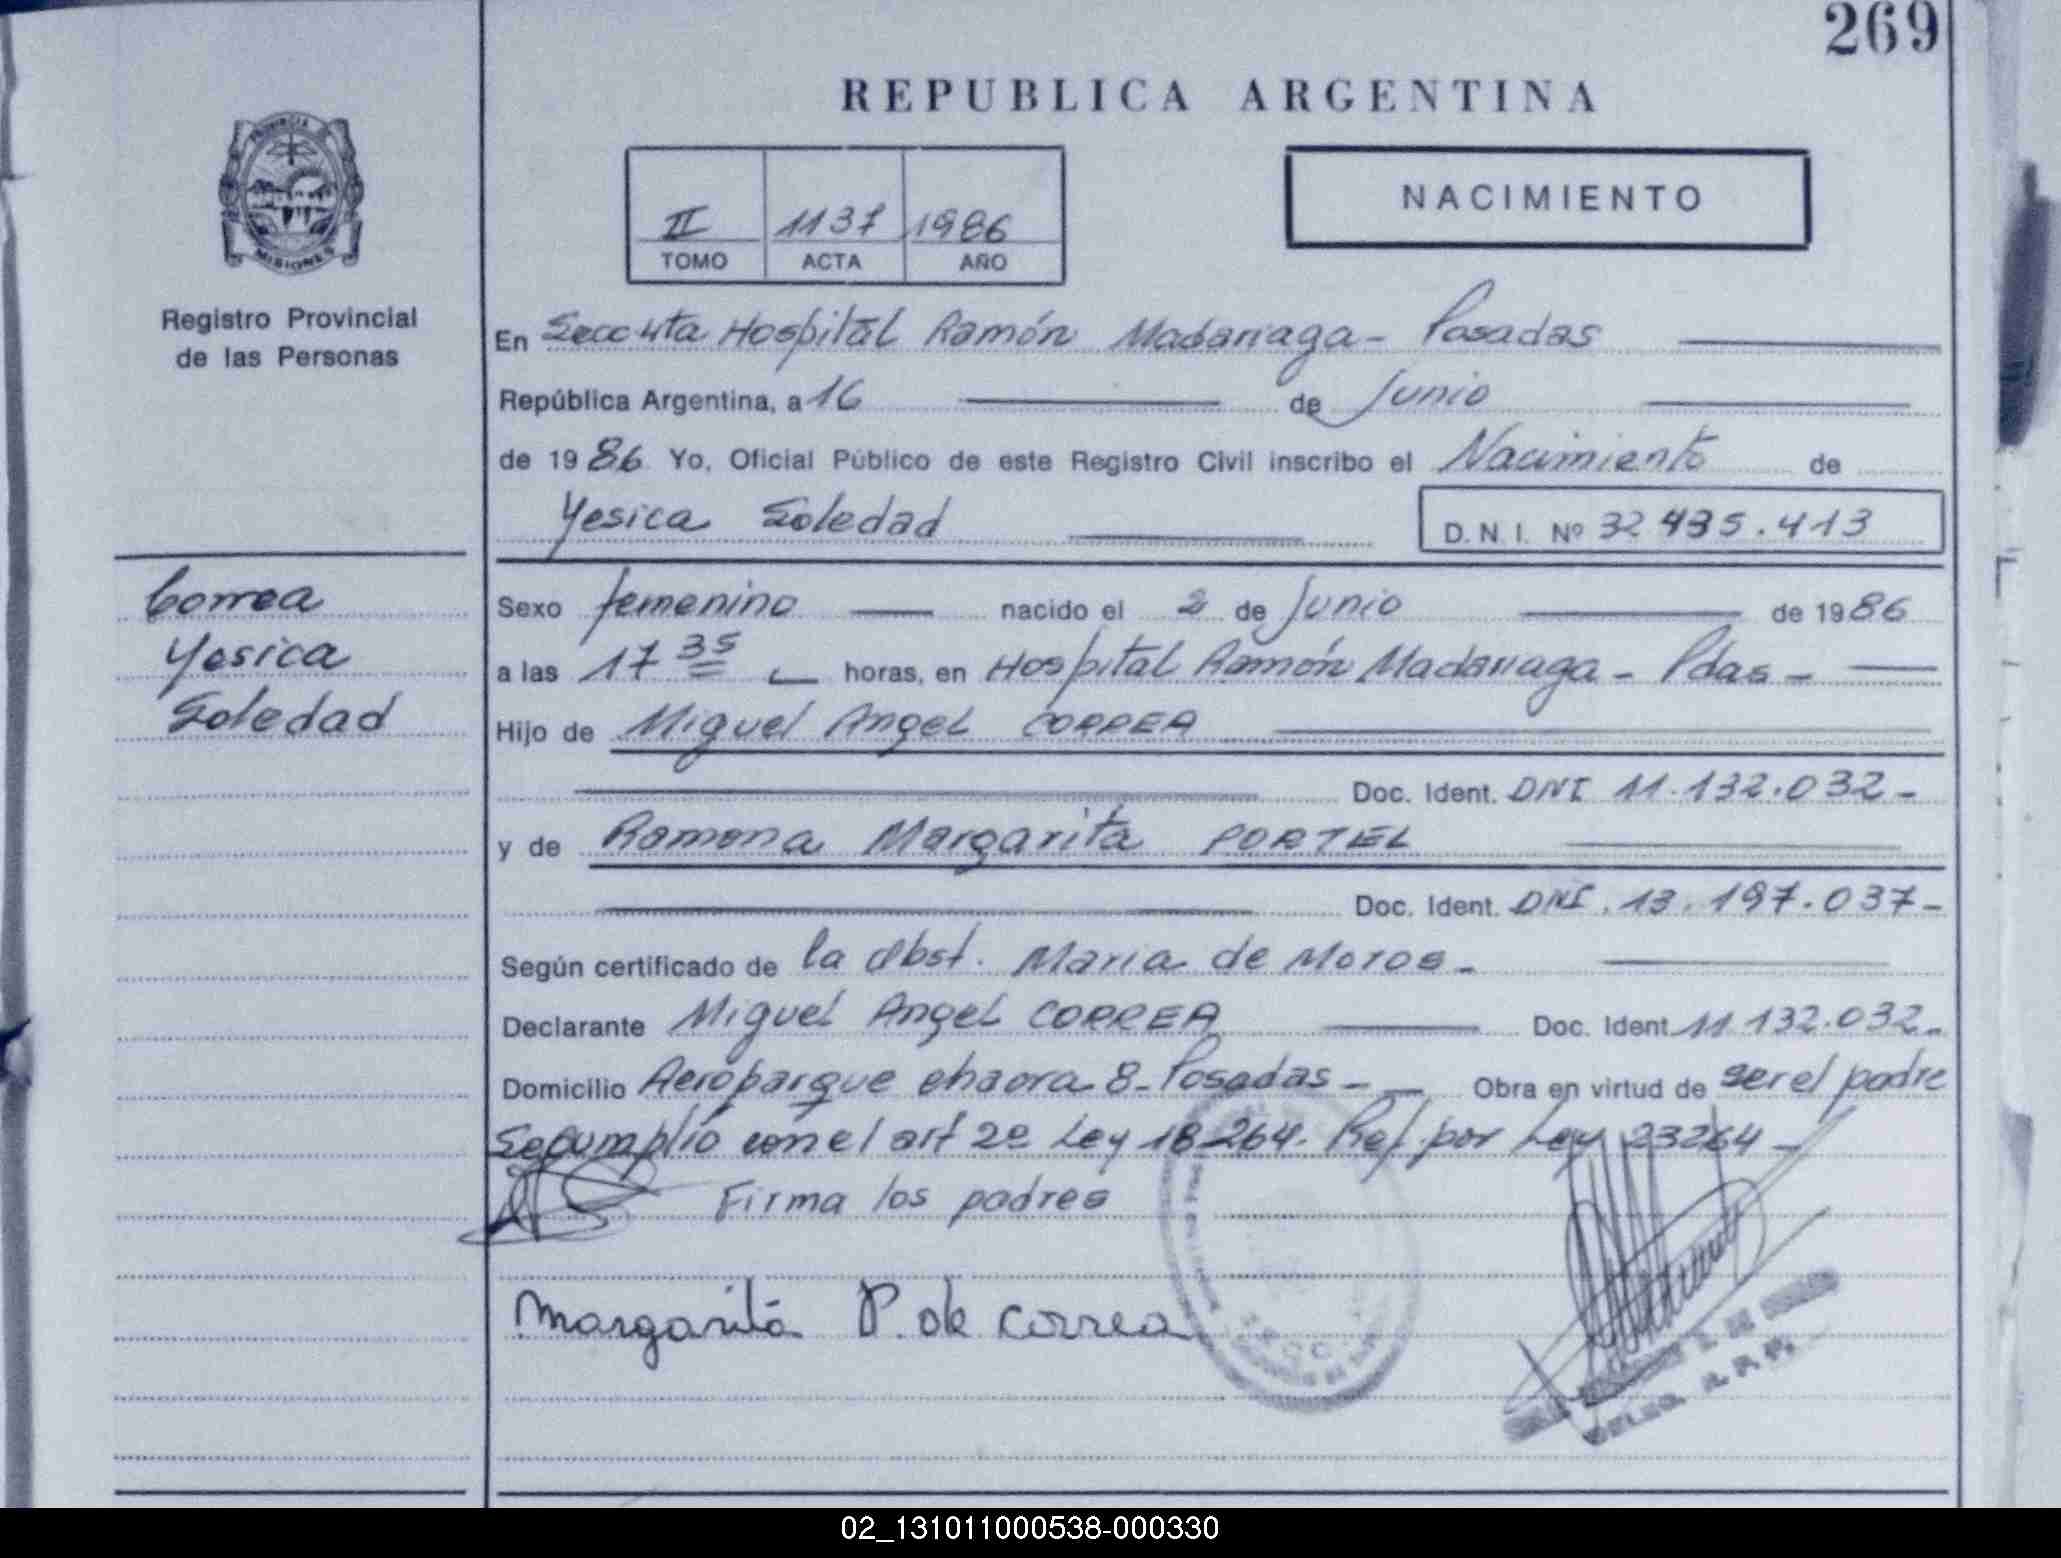 269
REPUBLICA ARGENTINA
PROVINCIA DE
MISIONES
Registro Provincial
de las Personas
II 1137 1986
TOMO ACTA AÑO
NACIMIENTO
En Secc 4ta Hospital Ramón Madariaga - Posadas
República Argentina, a 16 de Junio
de 1986 Yo, Oficial Público de este Registro Civil inscribo el Nacimiento de
Yesica Soledad
D. N. I. Nº 32 435.413
Correa
Yesica
Soledad
Sexo femenino nacido el 2 de Junio de 1986
a las 17 35 horas, en Hospital Ramón Madariaga - Pdas -
Hijo de Miguel Angel CORREA
Doc. Ident. DNI 11.132.032-
y de Ramona Margarita PORTEL
Doc. Ident. DNI. 13.197.037-
Según certificado de la Obst. Maria de Moros -
Declarante Miguel Angel CORREA Doc. Ident. 11 132.032-
Domicilio Aeroparque chacra 8 - Posadas - Obra en virtud de ser el padre
Se cumplio con el art 2º Ley 18264. Ref. por Ley 23264 -
Firma los padres
Margarita P. de Correa
02_131011000538-000330